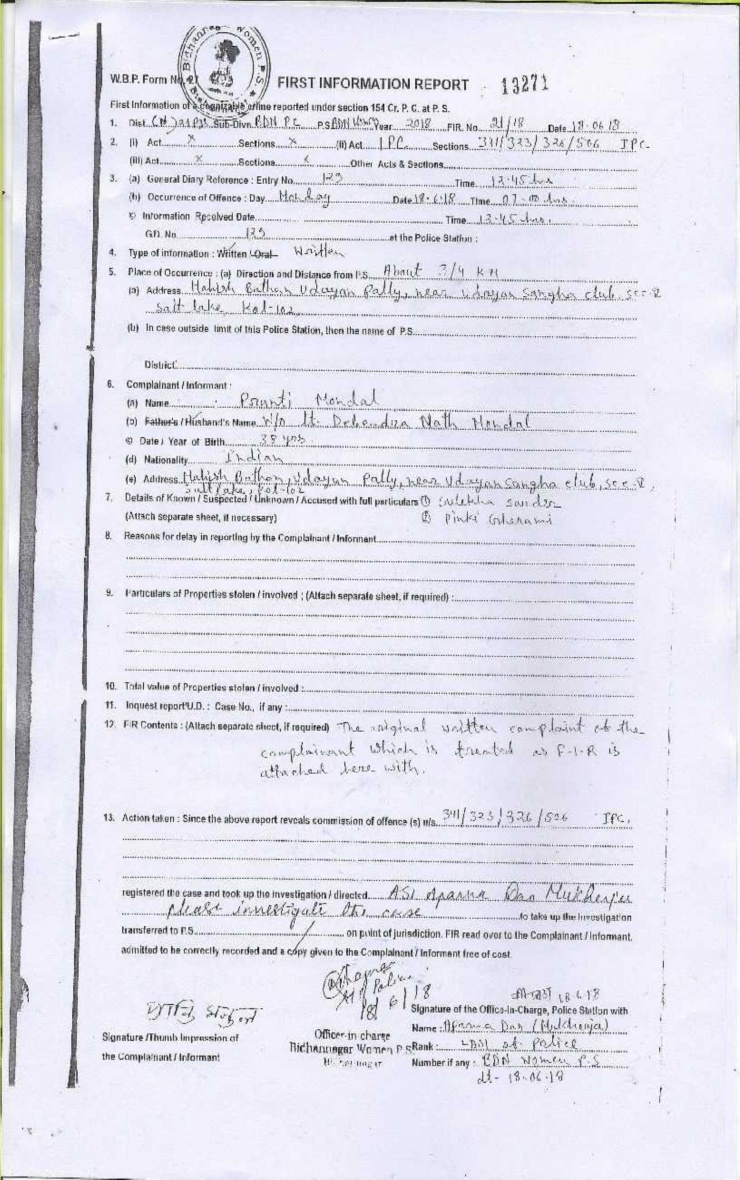 Bidhannagar Women P.S.
W.B.P. Form No. 27
FIRST INFORMATION REPORT 13271
First Information of a cognizable crime reported under section 154 Cr. P. C. at P. S.
1. Dist. (N) 24 PGS Sub-Divn. BDN P.C P.S BDN Women Year 2018 FIR. No. 21/18 Date 18.06.18
2. (i) Act X Sections X (ii) Act I.P.C. Sections 341/323/326/506 IPC.
(iii) Act X Sections X Other Acts & Sections
3. (a) General Diary Reference : Entry No. 129 Time 12.45 hrs
(b) Occurrence of Offence : Day Monday Date 18.6.18 Time 07.00 hrs.
© Information Received Date Time 12.45 hrs.
G.D. No. 129 at the Police Station :
4. Type of information : Written / Oral Written
5. Place of Occurrence : (a) Direction and Distance from P.S. About 3/4 KM
(a) Address Mahish Bathan, Udayan Pally, near Udayan Sangha club, sec-V
Salt lake, Kol-102
(b) In case outside limit of this Police Station, then the name of P.S.
District
6. Complainant / Informant :
(a) Name Pranti Mondal
(b) Father's / Husband's Name W/o Lt. Debendra Nath Mondal
© Date / Year of Birth 38 yrs.
(d) Nationality Indian
(e) Address Mahish Bathan, Udayan Pally, near Udayan Sangha club, sec-V,
Salt lake, Kol-102
7. Details of Known / Suspected / Unknown / Accused with full particulars ① Sulekha Sardar
(Attach separate sheet, if necessary) ② Pinki Gharami
8. Reasons for delay in reporting by the Complainant / Informant
9. Particulars of Properties stolen / involved ; (Attach separate sheet, if required) :
10. Total value of Properties stolen / involved :
11. Inquest report/U.D. : Case No., if any :
12. FIR Contents : (Attach separate sheet, if required) The original written complaint of the
complainant which is treated as F.I.R is
attached here with.
13. Action taken : Since the above report reveals commission of offence (s) u/s. 341/323/326/506 IPC.
registered the case and took up the investigation / directed ASI Aparna Das Mukherjee
please investigate the case to take up the Investigation
transferred to P.S. on point of jurisdiction. FIR read over to the Complainant / Informant,
admitted to be correctly recorded and a copy given to the Complainant / Informant free of cost.
of Police
18/6/18
18.6.18
Signature of the Office-in-Charge, Police Station with
Name : Aparna Das (Mukherjee)
Signature /Thumb Impression of
the Complainant / Informant
Officer-in charge
Bidhannagar Women P.S
Bidhannagar
Rank : LASI of Police
Number if any : BDN Women P.S
dt- 18.06.18